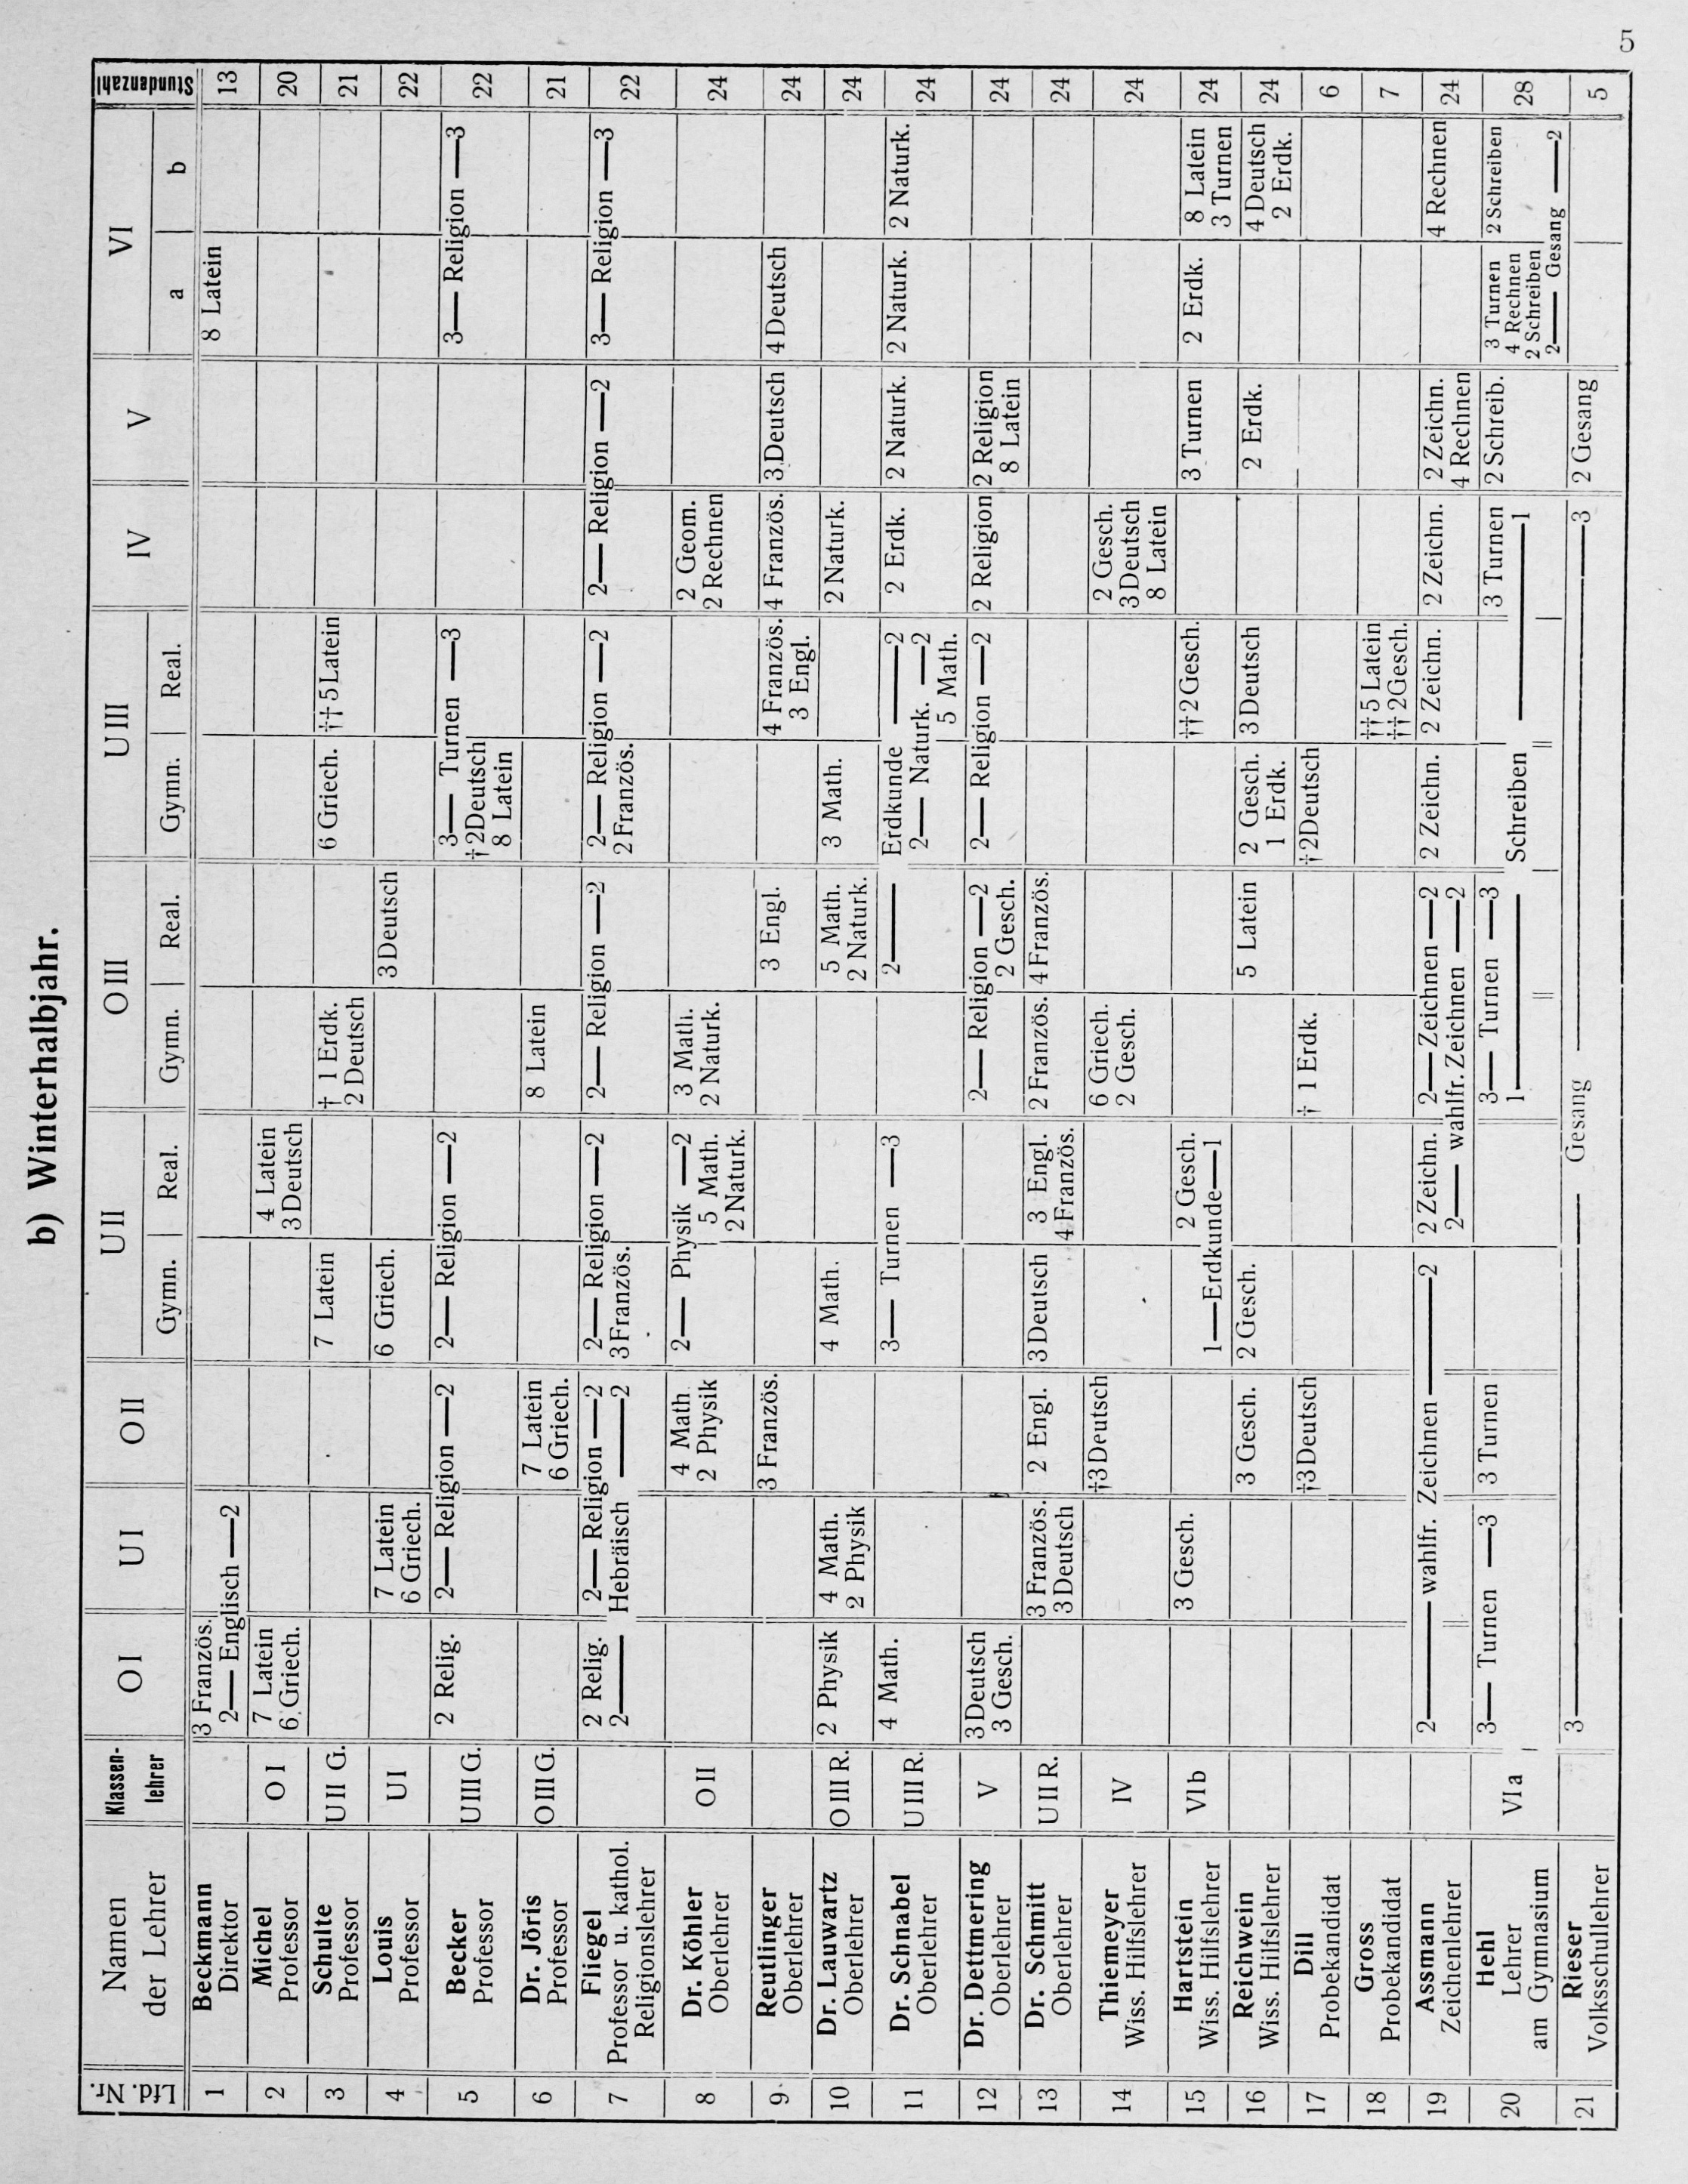 5
b) Winterhalbjahr.
Lfd. Nr. | Namen der Lehrer | Klassen-lehrer | O I | U I | O II | U II Gymn. | U II Real. | O III Gymn. | O III Real. | U III Gymn. | U III Real. | IV | V | VI a | VI b | Stundenzahl
1 Beckmann
Direktor
3 Französ.
2— Englisch —2
8 Latein
13
2 Michel
Professor
O I
7 Latein
6 Griech.
4 Latein
3 Deutsch
20
3 Schulte
Professor
U II G.
7 Latein
† 1 Erdk.
2 Deutsch
6 Griech.
†† 5 Latein
21
4 Louis
Professor
U I
7 Latein
6 Griech.
6 Griech.
3 Deutsch
22
5 Becker
Professor
U III G.
2 Relig.
2— Religion —2
2— Religion —2
3— Turnen —3
† 2 Deutsch
8 Latein
3— Religion —3
22
6 Dr. Jöris
Professor
O III G.
7 Latein
6 Griech.
8 Latein
21
7 Fliegel
Professor u. kathol.
Religionslehrer
2 Relig.
2— Religion —2
2— Hebräisch —2
2— Religion —2
3 Französ.
2— Religion —2
2— Religion —2
2 Französ.
2— Religion —2
3— Religion —3
22
8 Dr. Köhler
Oberlehrer
O II
4 Math.
2 Physik
2— Physik —2
5 Math.
2 Naturk.
3 Math.
2 Naturk.
2 Geom.
2 Rechnen
24
9 Reutlinger
Oberlehrer
3 Französ.
3 Engl.
4 Französ.
3 Engl.
4 Französ.
3 Deutsch
4 Deutsch
24
10 Dr. Lauwartz
Oberlehrer
O III R.
2 Physik
4 Math.
2 Physik
4 Math.
5 Math.
2 Naturk.
3 Math.
2 Naturk.
24
11 Dr. Schnabel
Oberlehrer
U III R.
4 Math.
3— Turnen —3
2— Erdkunde —2
2— Naturk. —2
5 Math.
2 Erdk.
2 Naturk.
2 Naturk.
2 Naturk.
24
12 Dr. Dettmering
Oberlehrer
V
3 Deutsch
3 Gesch.
2— Religion —2
2 Gesch.
2— Religion —2
2 Religion
2 Religion
8 Latein
24
13 Dr. Schmitt
Oberlehrer
U II R.
3 Französ.
3 Deutsch
2 Engl.
3 Deutsch
3 Engl.
4 Französ.
2 Französ.
4 Französ.
24
14 Thiemeyer
Wiss. Hilfslehrer
IV
†3 Deutsch
6 Griech.
2 Gesch.
2 Gesch.
3 Deutsch
8 Latein
24
15 Hartstein
Wiss. Hilfslehrer
VI b
3 Gesch.
2 Gesch.
1—Erdkunde—1
†† 2 Gesch.
3 Turnen
2 Erdk.
8 Latein
3 Turnen
24
16 Reichwein
Wiss. Hilfslehrer
3 Gesch.
2 Gesch.
5 Latein
2 Gesch.
1 Erdk.
3 Deutsch
2 Erdk.
4 Deutsch
2 Erdk.
24
17 Dill
Probekandidat
†3 Deutsch
† 1 Erdk.
† 2 Deutsch
6
18 Gross
Probekandidat
†† 5 Latein
†† 2 Gesch.
7
19 Assmann
Zeichenlehrer
2— wahlfr. Zeichnen —2
2 Zeichn.
2— Zeichnen —2
2— wahlfr. Zeichnen —2
2 Zeichn.
2 Zeichn.
2 Zeichn.
2 Zeichn.
4 Rechnen
4 Rechnen
24
20 Hehl
Lehrer
am Gymnasium
VI a
3— Turnen —3
3 Turnen
3— Turnen —3
1— Schreiben —1
3 Turnen
2 Schreib.
3 Turnen
4 Rechnen
2 Schreiben
2 Schreiben
2— Gesang —2
28
21 Rieser
Volksschullehrer
3— Gesang —3
2 Gesang
5